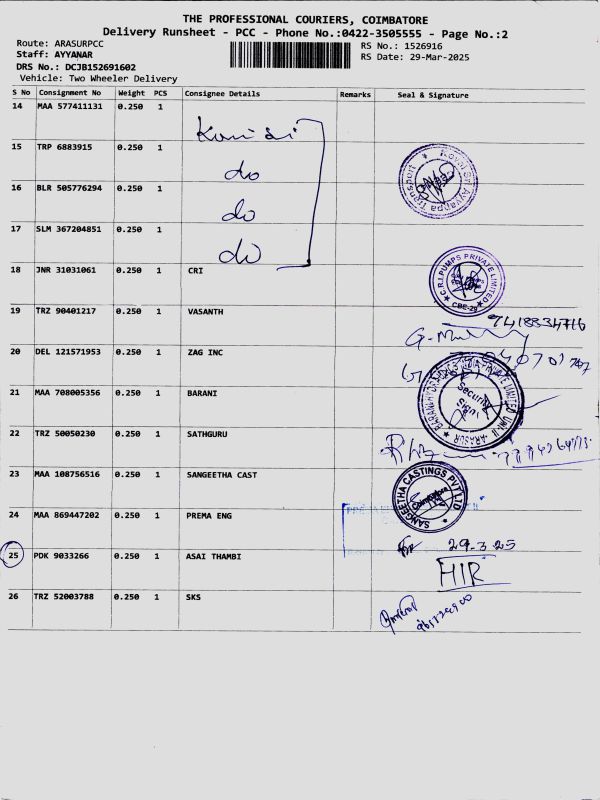 THE PROFESSIONAL COURIERS, COIMBATORE
Delivery Runsheet - PCC - Phone No.:0422-3505555 - Page No.:2
Route: ARASURPCC
Staff: AYYANAR
DRS No.: DCJB152691602
Vehicle: Two Wheeler Delivery
RS No.: 1526916
RS Date: 29-Mar-2025
S No Consignment No Weight PCS Consignee Details Remarks Seal & Signature
14 MAA 577411131 0.250 1
15 TRP 6883915 0.250 1 do
16 BLR 505776294 0.250 1 do
17 SLM 367204851 0.250 1 do
18 JNR 31031061 0.250 1 CRI
C.R.I.PUMPS PRIVATE LIMITED
CBE-29
19 TRZ 90401217 0.250 1 VASANTH
20 DEL 121571953 0.250 1 ZAG INC
21 MAA 708005356 0.250 1 BARANI
Security
22 TRZ 50050230 0.250 1 SATHGURU
23 MAA 108756516 0.250 1 SANGEETHA CAST
SANGEETHA CASTINGS PVT LTD
24 MAA 869447202 0.250 1 PREMA ENG
29-3-25
25 PDK 9033266 0.250 1 ASAI THAMBI
HIR
26 TRZ 52003788 0.250 1 SKS